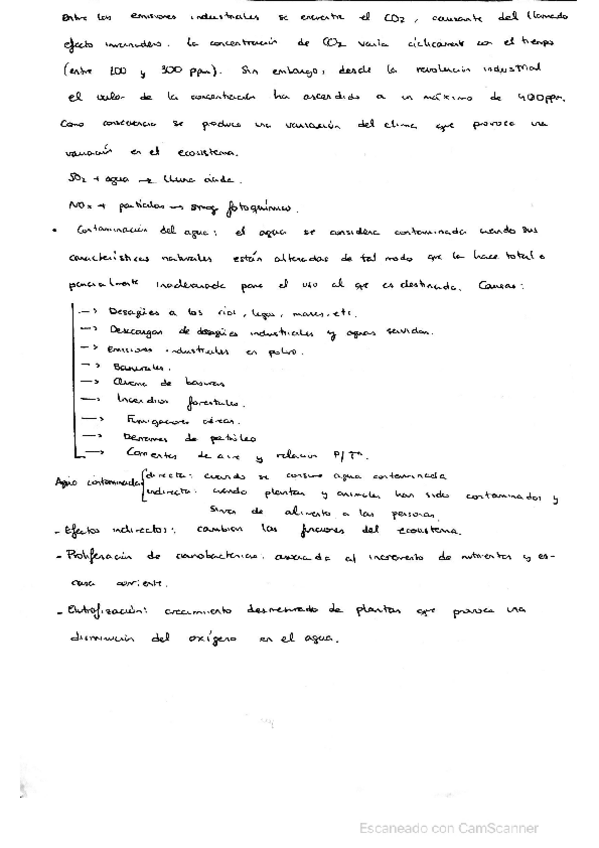 Entre las emisiones industriales se encuentra el CO2, causante del llamado
efecto invernadero. La concentración de CO2 varía cíclicamente con el tiempo
(entre 200 y 300 ppm). Sin embargo, desde la revolución industrial
el valor de la concentración ha ascendido a un máximo de 400ppm.
Como consecuencia se produce una variación del clima que provoca una
variación en el ecosistema.
SO2 + agua → lluvia ácida.
NOx + partículas → smog fotoquímico.
• Contaminación del agua: el agua se considera contaminada cuando sus
características naturales están alteradas de tal modo que la hace total o
parcialmente inadecuada para el uso al que es destinada. Causas:
→ Desagües a los ríos, lagos, mares, etc.
→ Descargas de desagües industriales y aguas servidas.
→ Emisiones industriales en polvo.
→ Basurales.
→ Quema de basuras
→ Incendios forestales.
→ Fumigaciones aéreas.
→ Derrames de petróleo
→ Corrientes de aire y relación P/Tª.
Agua contaminada directa: cuando se consume agua contaminada
indirecta: cuando plantas y animales han sido contaminados y
sirven de alimento a las personas.
- Efectos indirectos: cambian las funciones del ecosistema.
- Proliferación de cianobacterias: asociada al incremento de nutrientes y es-
casa corriente.
- Eutrofización: crecimiento desmesurado de plantas que provoca una
disminución del oxígeno en el agua.
Escaneado con CamScanner